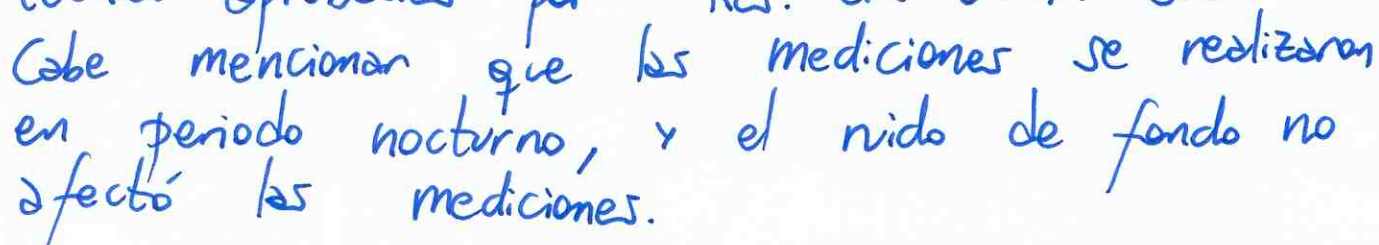 Cabe mencionar que las mediciones se realizaron
en periodo nocturno, y el ruido de fondo no
afectó las mediciones.